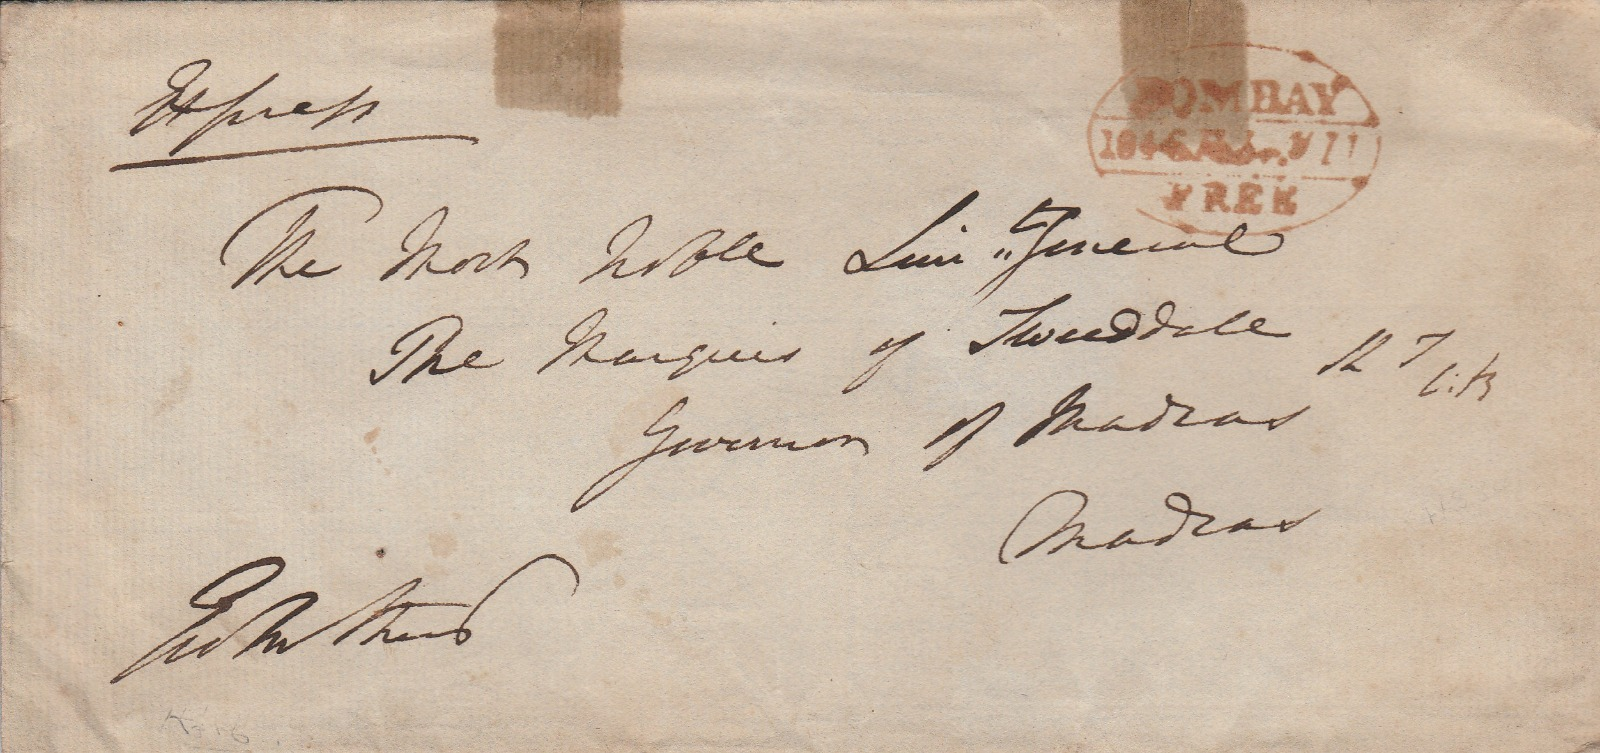 Express
BOMBAY
FREE
The Most Noble Lieu.t General
The Marquis of Tweeddale K T
Governor of Madras
Madras